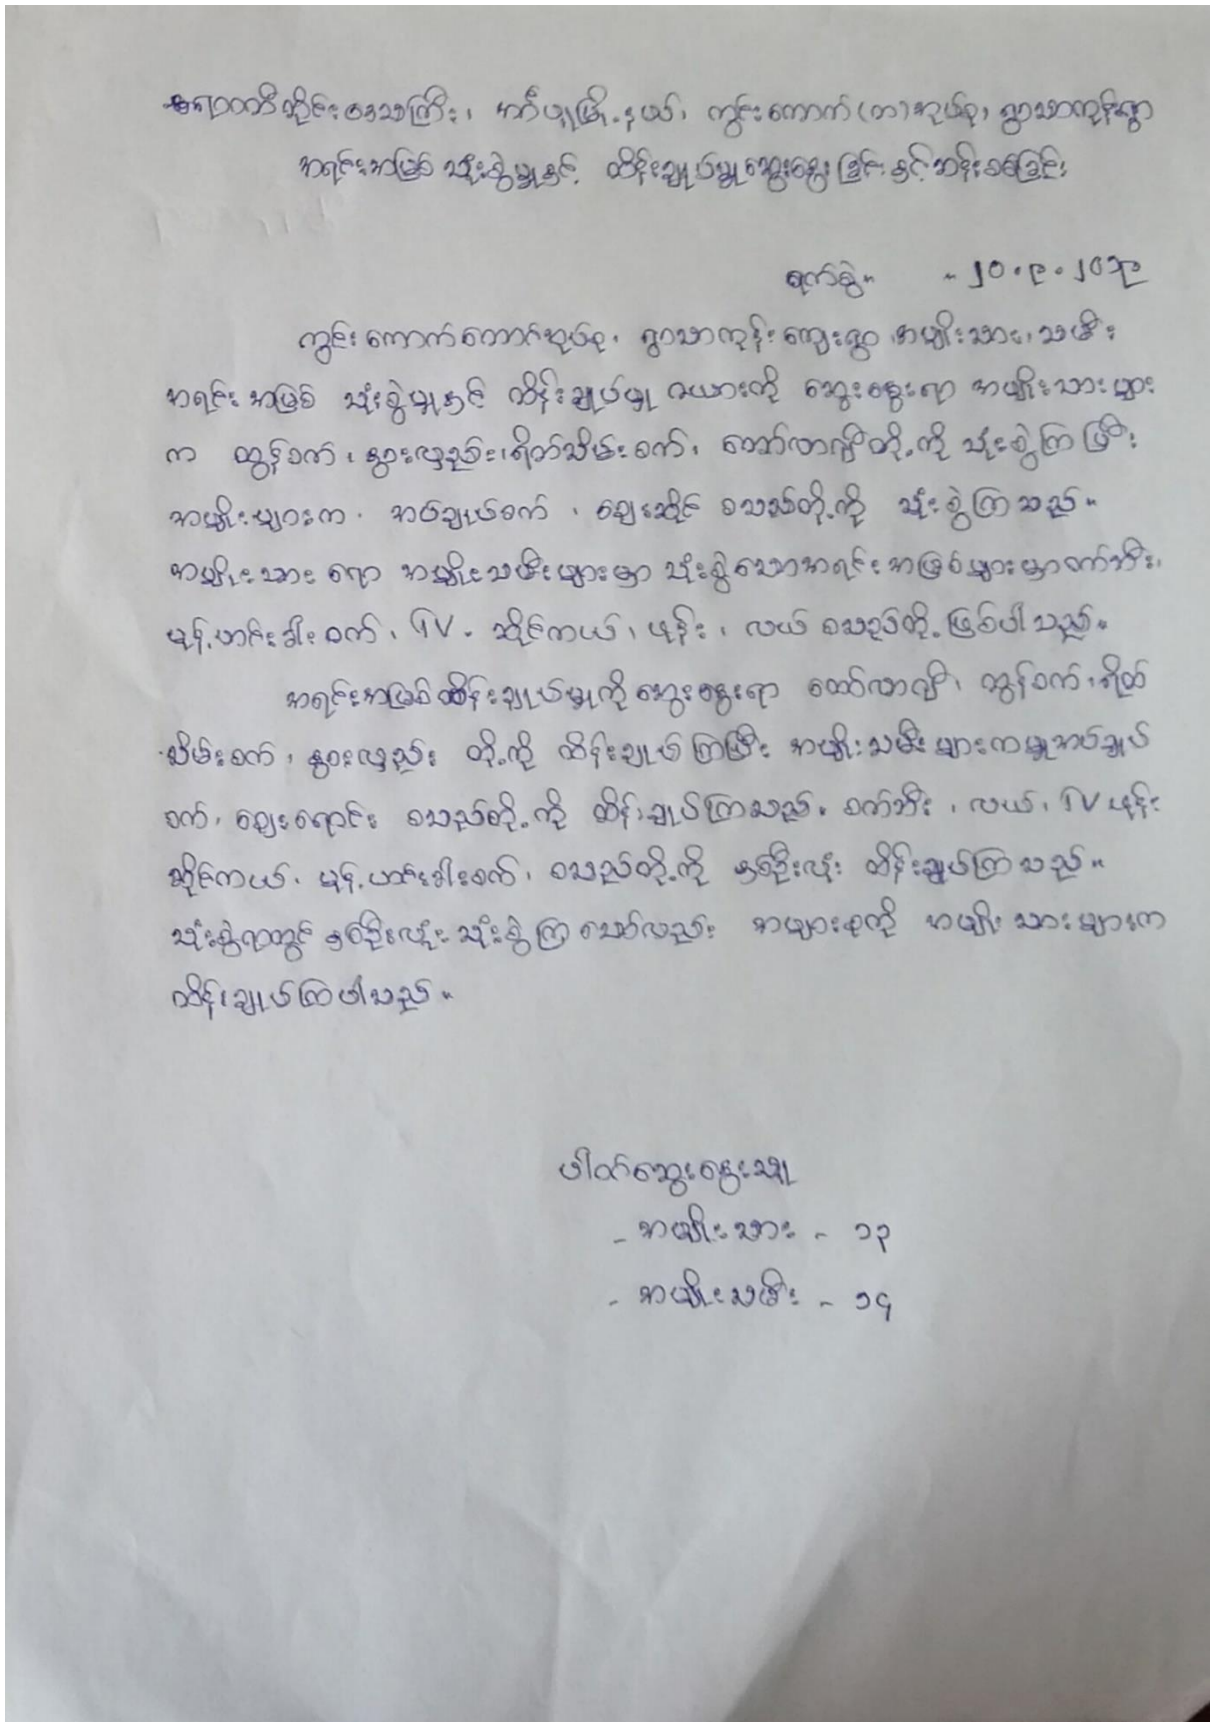 ဧရာဝတီတိုင်းဒေသကြီး၊ အင်္ဂပူမြို့နယ်၊ ကွင်းကောက်(တ)အုပ်စု၊ ရွာသာကုန်းရွာ
အရင်းအမြစ် သုံးစွဲမှုနှင့် ထိန်းချုပ်မှုဆွေးနွေးခြင်းနှင့်ဆန်းစစ်ခြင်း
ရက်စွဲ။ - ၂၀.၉.၂၀၁၉
ကွင်းကောက်တောင်အုပ်စု၊ ရွာသာကုန်းကျေးရွာ၊ အမျိုးသား၊ သမီး
အရင်းအမြစ် သုံးစွဲမှုနှင့် ထိန်းချုပ်မှု ဇယားကို ဆွေးနွေးရာ အမျိုးသားများ
က ထွန်စက်၊ နွားလှည်း၊ ရိတ်သိမ်းစက်၊ ထော်လာဂျီတို့ကို သုံးစွဲကြပြီး
အမျိုးများက အပ်ချုပ်စက်၊ ဈေးဆိုင် စသည်တို့ကို သုံးစွဲကြသည်။
အမျိုးသားရော အမျိုးသမီးများမှာ သုံးစွဲသောအရင်းအမြစ်များမှာစက်ဘီး၊
မုန့်ဟင်းခါးစက်၊ TV၊ ဆိုင်ကယ်၊ ဖုန်း၊ လယ် စသည်တို့ဖြစ်ပါသည်။
အရင်းအမြစ်ထိန်းချုပ်မှုကိုဆွေးနွေးရာ ထော်လာဂျီ၊ ထွန်စက်၊ ရိတ်
သိမ်းစက်၊ နွားလှည်း တို့ကို ထိန်းချုပ်ကြပြီး အမျိုးသမီးများကမူအပ်ချုပ်
စက်၊ ဈေးရောင်း စသည်တို့ကို ထိန်းချုပ်ကြသည်။ စက်ဘီး၊ လယ်၊ TV ဖုန်း
ဆိုင်ကယ်၊ မုန့်ဟင်းခါးစက်၊ စသည်တို့ကို နှစ်ဦးလုံး ထိန်းချုပ်ကြသည်။
သုံးစွဲရာတွင် နှစ်ဦးလုံး သုံးစွဲကြသော်လည်း အများစုကို အမျိုးသားများက
ထိန်းချုပ်ကြပါသည်။
ပါဝင်ဆွေးနွေးသူ
- အမျိုးသား - ၁၃
- အမျိုးသမီး - ၁၄